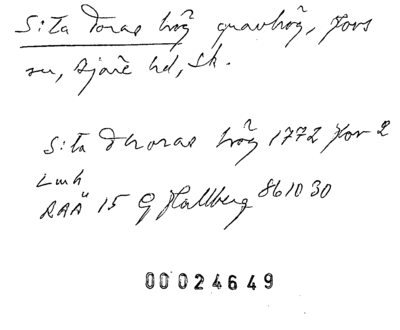 S:ta Toras hög gravhög, Fors
sn, Bjäre hd, Sk.
S:ta Thoras hög 1772 For 2
Lmh
RAÄ 15 G Hallberg 861030
00024649